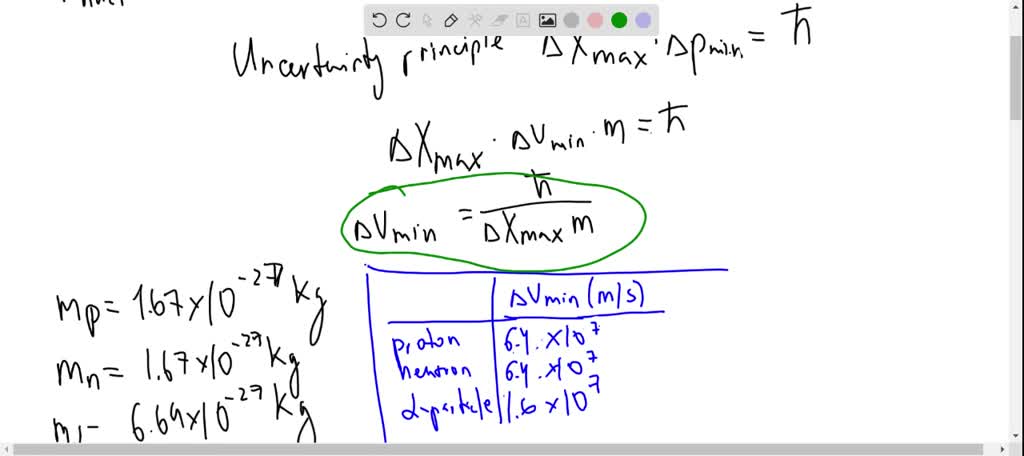 Uncertainty principle ΔXmax · Δpmin = ħ
ΔXmax · ΔVmin · m = ħ
ΔVmin = ħ / ΔXmax m
mp = 1.67 × 10^-27 kg
mn = 1.67 × 10^-27 kg
6.64 × 10^-27 kg
ΔVmin (m/s)
proton 6.4 · × 10^7
neutron 6.4 · × 10^7
α-particle 1.6 × 10^7